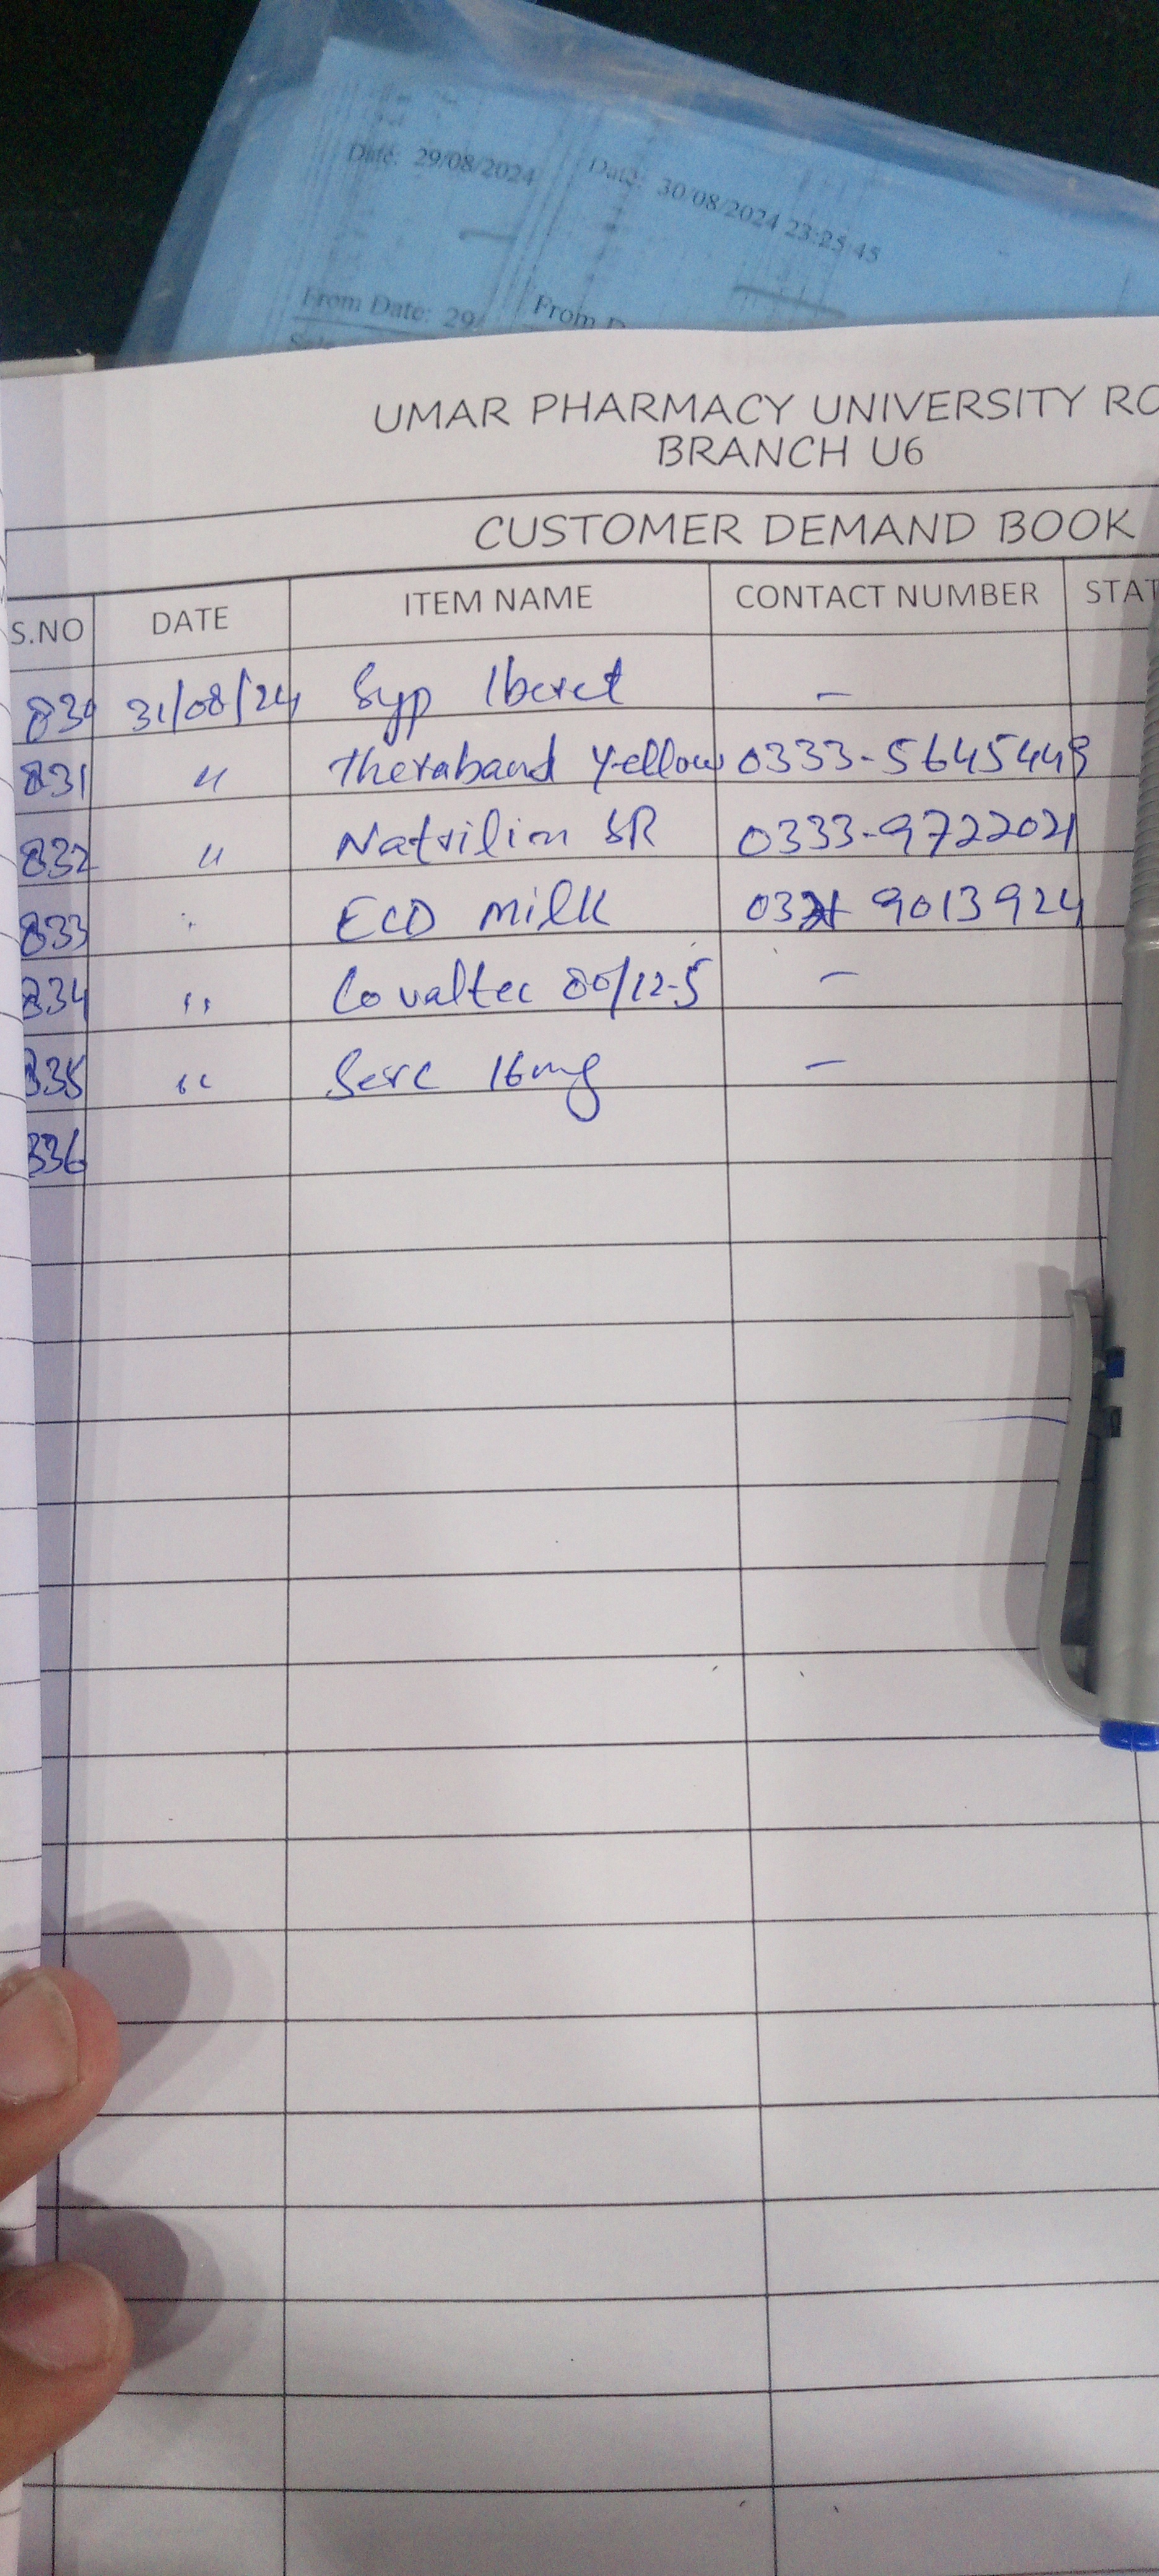 Date: 29/08/2024
Date: 30/08/2024 23:25:45
From Date: 29/
From
UMAR PHARMACY UNIVERSITY RO
BRANCH U6
CUSTOMER DEMAND BOOK
S.NO DATE ITEM NAME CONTACT NUMBER STAT
830 31/08/24 Syp Iberet –
831 " Theraband Yellow 0333-5645449
832 " Natrilim SR 0333-9722021
833 " ECD milk 9013924
834 " Covaltec 80/12.5 –
835 " Serc 16mg –
836